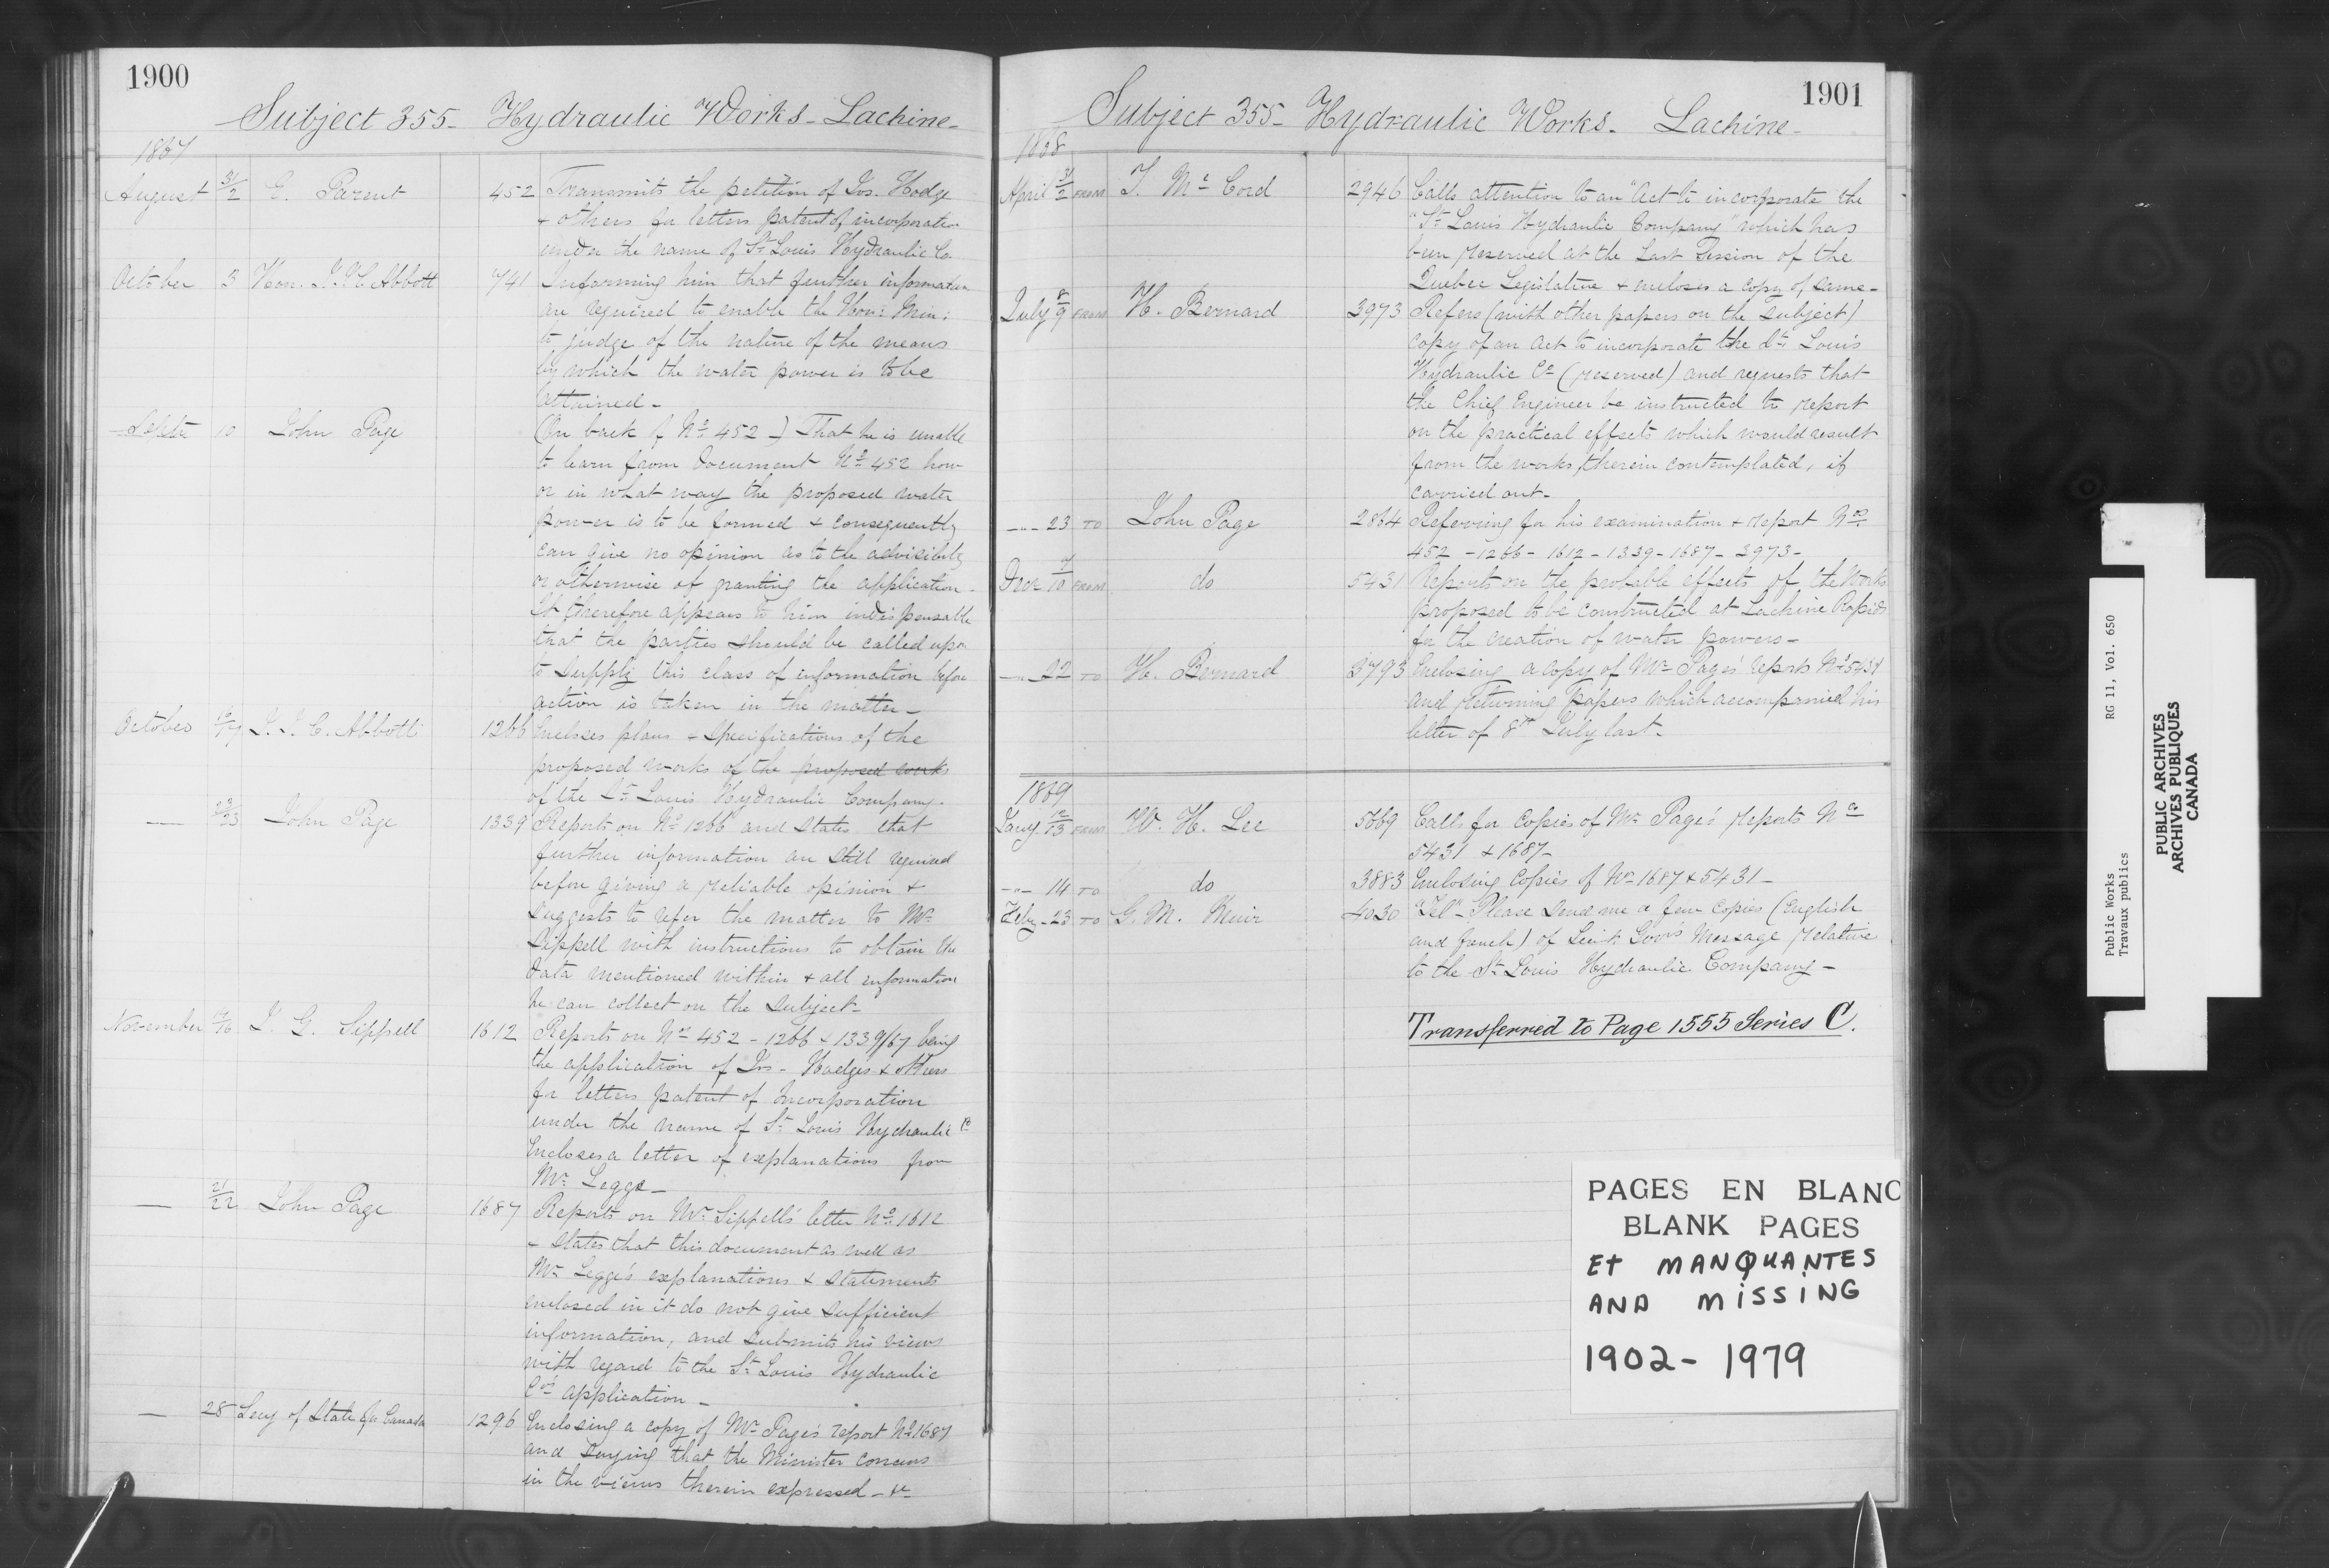 1900
Subject 355 - Hydraulic Works - Lachine -
1867
August 31/2 E. Parent 452 Transmits the petition of Jos. Hodge
& others for letters patent of incorporation
under the name of St Louis Hydraulic Co.
October 3 Hon. J. J. C. Abbott 741 Informing him that further information
are required to enable the Hon: Min:
to judge of the nature of the means
by which the water power is to be
attained -
Septr 10 John Page (On back of No 452 -) That he is unable
to learn from Document No 452 how
or in what way the proposed water
power is to be formed & consequently
can give no opinion as to the advisibility
or otherwise of granting the application -
It therefore appears to him indispensable
that the parties should be called upon
to supply this class of information before
action is taken in the matter -
October J. J. C. Abbott 1266 Encloses plans & specifications of the
proposed works of the proposed works
of the St Louis Hydraulic Company -
— 22/23 John Page 1339 Reports on No 1266 and states that
further information are still required
before giving a reliable opinion &
suggests to refer the matter to Mr
Sippell with instructions to obtain the
data mentioned within & all information
he can collect on the subject -
November 14/16 J. G. Sippell 1612 Reports on Nos 452 - 1266 & 1339/67 being
the application of Jos - Hodges & others
for letters patent of Incorporation
under the name of St Louis Hydraulic Co
Encloses a letter of explanations from
Mr Legge -
— 21/22 John Page 1687 Reports on Mr Sippell's letter No 1612
& states that this document as well as
Mr Legge's explanations & statements
enclosed in it do not give sufficient
information, and submits his views
with regard to the St Louis Hydraulic
Co's application -
— 28 Secy of State for Canada 1296 Enclosing a copy of Mr Page's report No 1687
and saying that the Minister concurs
in the views therein expressed - &c
1901
Subject 355 - Hydraulic Works - Lachine -
1868
April 31/2 FROM T. Mc Cord 2946 Calls attention to an "Act to incorporate the
"St Louis Hydraulic Company" which has
been reserved at the Last Session of the
Quebec Legislative & encloses a copy of same -
July 8/9 FROM H. Bernard 3973 Refers (with other papers on the subject)
copy of an Act to incorporate the St Louis
Hydraulic Co (reserved) and requests that
the Chief Engineer be instructed to report
on the practical effects which would result
from the works, therein contemplated, if
carried out -
-"- 23 TO John Page 2864 Referring for his examination & report Nos
452 - 1266 - 1612 - 1339 - 1687 - 3973 -
Decr 9/10 FROM do 5431 Reports on the probable effects of the Works
proposed to be constructed at Lachine Rapids
for the creation of water powers -
-"- 22 TO H. Bernard 3793 Enclosing a copy of Mr Page's report No 5431
and returning papers which accompanied his
letter of 8th July last -
1869
Jany 12/13 FROM W. H. Lee 5669 Calls for Copies of Mr Page's reports Nos
5431 & 1687 -
-"- 14 TO do 3883 Enclosing Copies of Nos 1687 & 5431 -
Feby - 23 TO G. M. Muir 4030 "Tel" - Please send me a few copies (English
and french) of Lieut: Govrs Message relative
to the St Louis Hydraulic Company -
Transferred to Page 1555 Series C.
PAGES EN BLANC
BLANK PAGES
Et MANQUANTES
AND MISSING
1902 - 1979
Public Works RG 11, Vol. 650
Travaux publics
PUBLIC ARCHIVES
ARCHIVES PUBLIQUES
CANADA